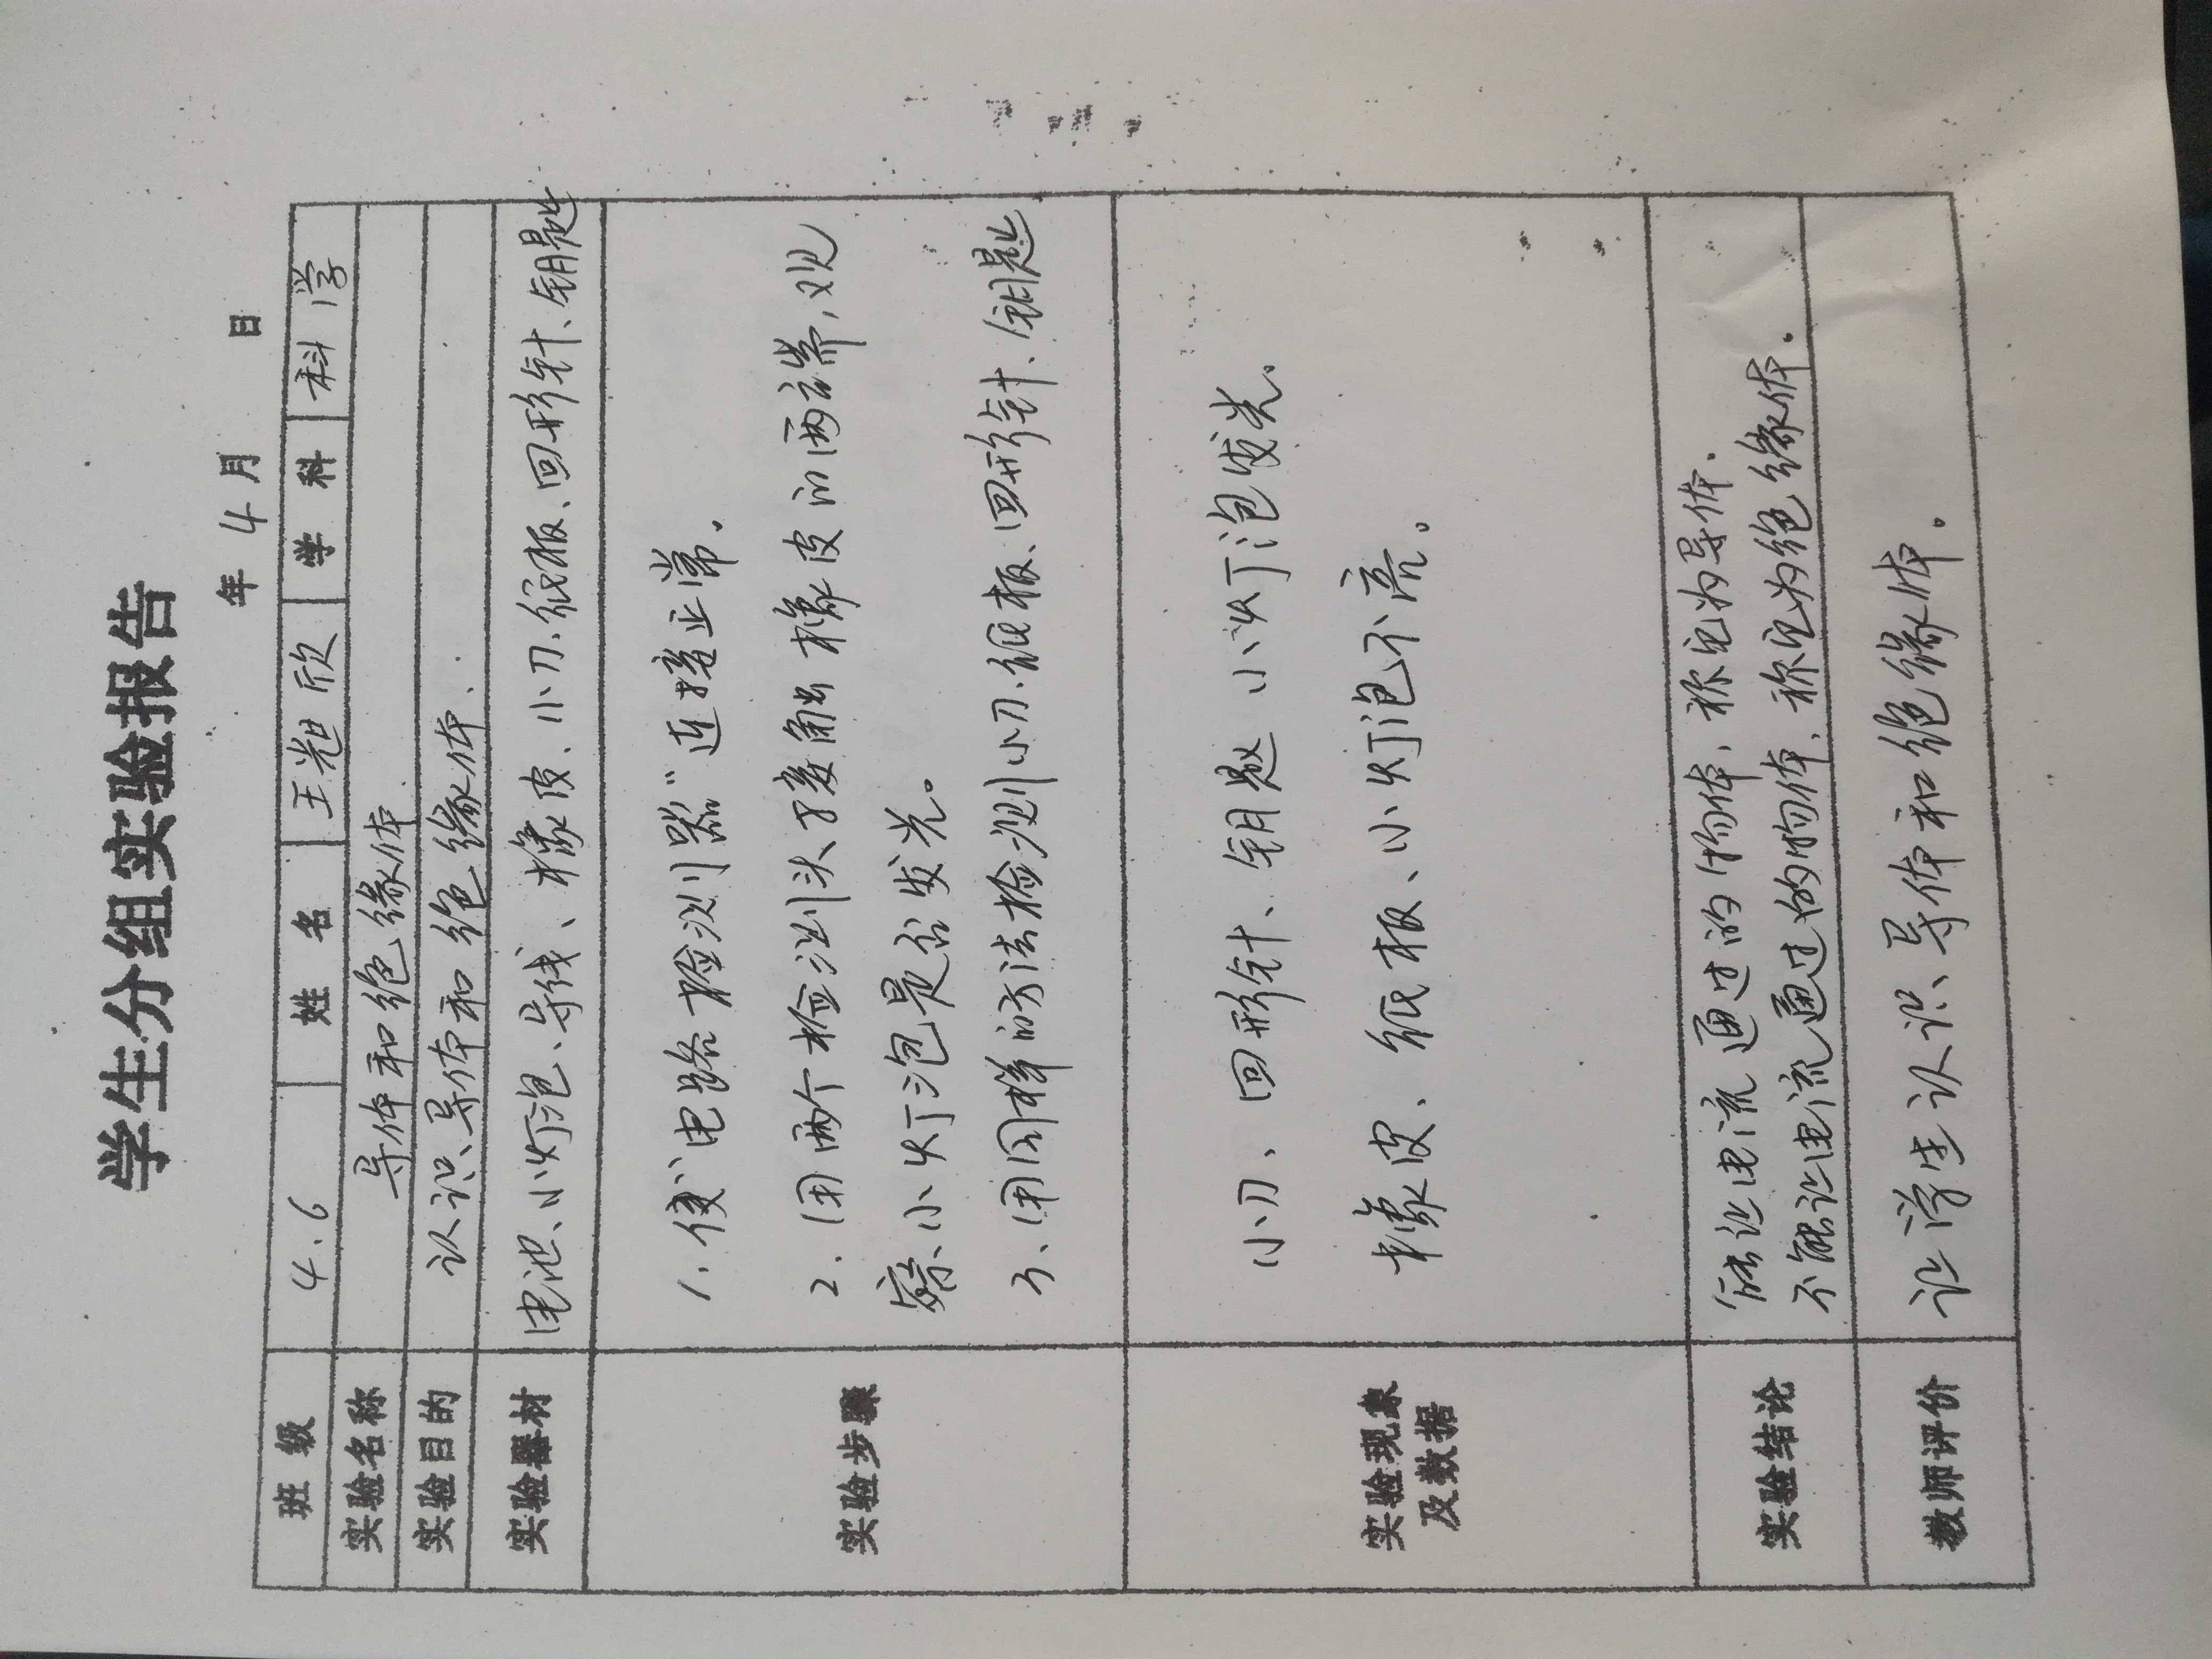 学生分组实验报告
年 4 月 日
班 级 4.6 姓 名 王 欣 学 科 科学
实验名称 导体和绝缘体.
实验目的 认识导体和绝缘体.
实验器材 电池、小灯泡、导线、橡皮、小刀、纸板、回形针、钥匙
实验步骤
1.使“电路检测器”连接正常.
2.用两个检测头接触橡皮的两端,观
察小灯泡是否发光。
3、用同样的方法检测小刀、纸板、回形针、钥匙
实验现象
及数据
小刀、回形针、钥匙 小灯泡发光.
橡皮、纸板、小灯泡不亮。
实验结论
能让电流通过的物体,称它为导体.
不能让电流通过的物体,称它为绝缘体.
教师评价 让学生认识导体和绝缘体.